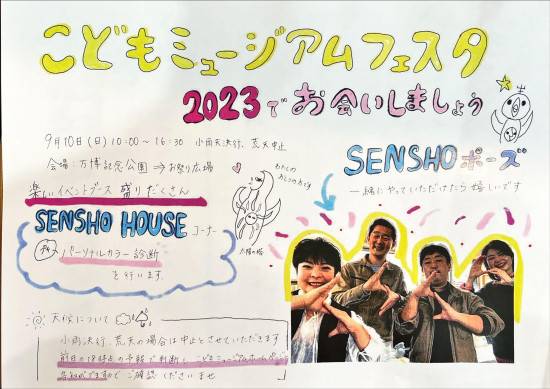 こどもミュージアムフェスタ
2023でお会いしましょう
9月10日(日)10:00~16:30 小雨天決行、荒天中止
会場:万博記念公園⇒お祭り広場
楽しいイベントブース 盛りだくさん
SENSHO HOUSE コーナー
パーソナルカラー診断
を行います
太陽の塔
SENSHOポーズ
一緒にやっていただけたら嬉しいです
天候について
小雨決行、荒天の場合は中止とさせていただきます
前日の18時点の予報で判断し、こどもミュージアムホームページ
ご確認くださいませ